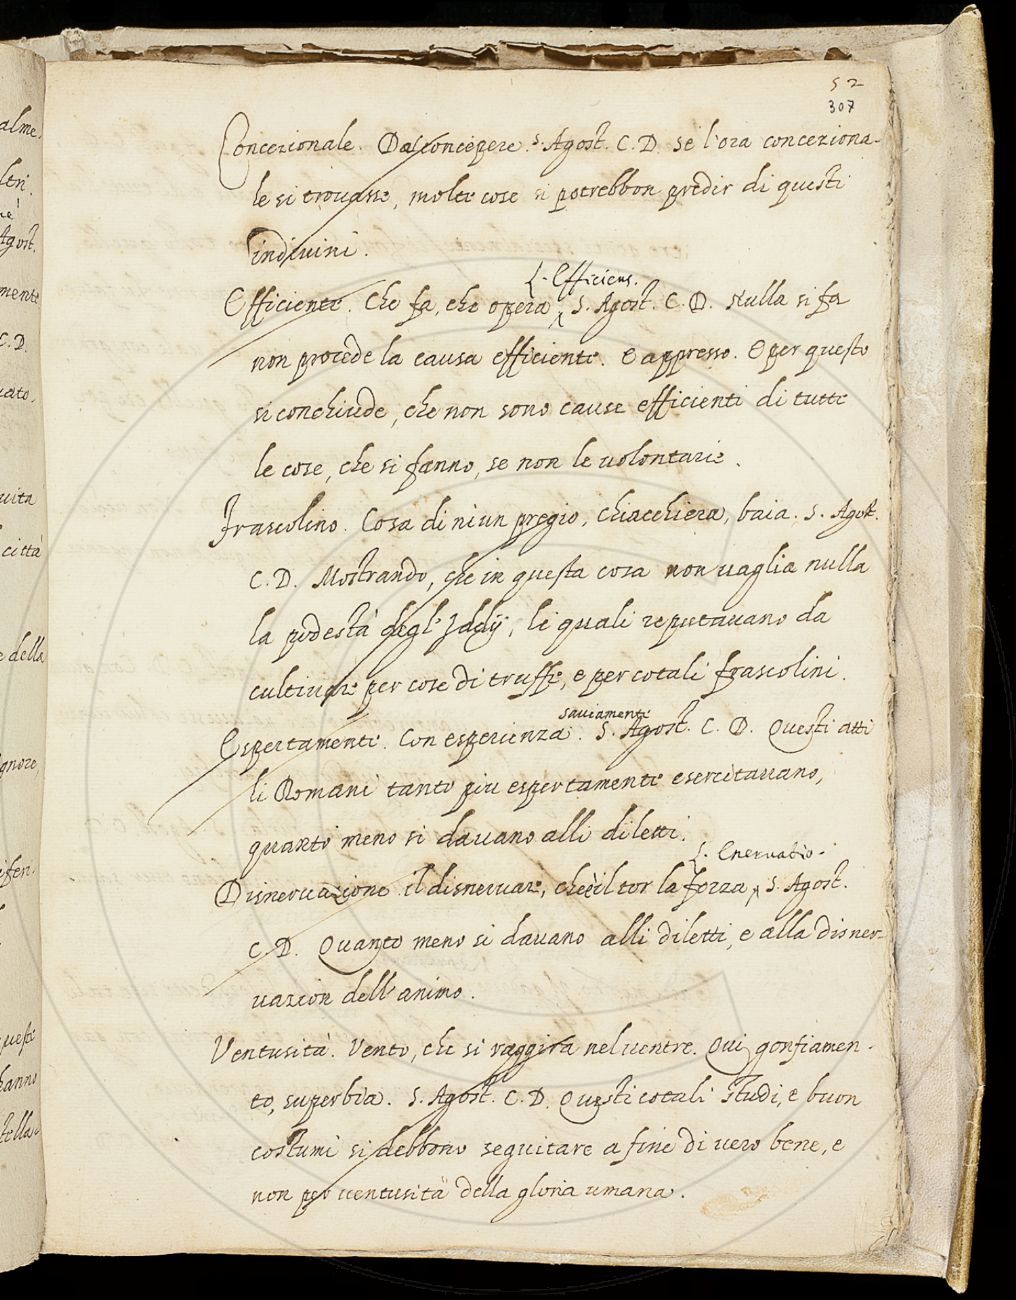 52
307
Concezionale. Dal concepere. S. Agost. C. D. Se l'ora conceziona-
le si trovasse, molte cose si potrebbon predir di questi
indivini.
L. Efficiens.
Efficiente. Che fa, che opera S. Agost. C. D. Nulla si fa
non procede la causa efficiente. E appresso. E per questo
si conchiude, che non sono cause efficienti di tutte
le cose, che si fanno, se non le volontarie.
Frascolino. Cosa di niun pregio, chiacchiera, baia. S. Agost.
C. D. Mostrando, che in questa cosa non vaglia nulla
la podestà degl' Iddij, li quali reputavano da
cultivare per cose di truffe, e per cotali frascolini.
saviamente
Espertamente. Con esperienza. S. Agost. C. D. Questi atti
li Romani tanto piu espertamente esercitavano,
quanto meno si davano alli diletti.
L. Enervatio.
Disnervazione il disnervare, che è il tor la forza, S. Agost.
C. D. Quanto meno si davano alli diletti, e alla disner-
vazion dell'animo.
Ventusità. Vento, che si raggira nel ventre. Qui gonfiamen-
to, superbia. S. Agost. C. D. Questi cotali studi, e buon
costumi si debbono seguitare a fine di vero bene, e
non per ventusità della gloria umana.
alme.
ltri.
Agost.
mente
C. D.
vato.
vita
città
e della
gnore,
queste
hanno
tella